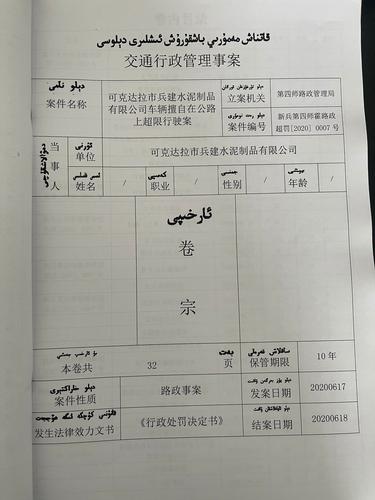 قاتناش مەمۇرىي باشقۇرۇش ئىشلىرى دېلوسى
交通行政管理事案
دېلو نامى
案件名称
可克达拉市兵建水泥制品
有限公司车辆擅自在公路
上超限行驶案
立案机关
第四师路政管理局
案件编号
新兵第四师霍路政
超罚[2020] 0007 号
当事人
单位
可克达拉市兵建水泥制品有限公司
姓名
/
职业
/
性别
/
年龄
/
ئارخىپى
卷
宗
本卷共
32
بەت
页
保管期限
10 年
案件性质
路政事案
发案日期
20200617
发生法律效力文书
《行政处罚决定书》
结案日期
20200618